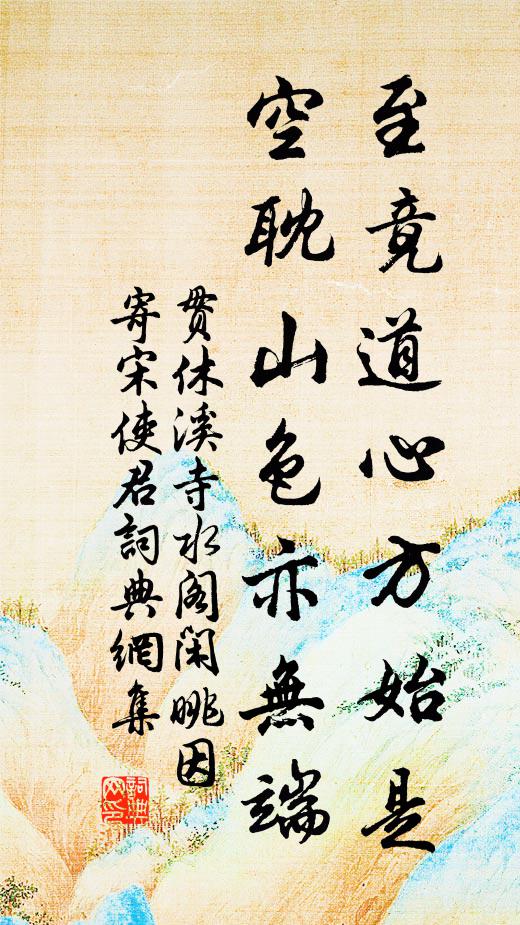 至竟道心方始是
空耽山色亦無端
貫休溪寺水閣閑眺因
寄宋使君詞典網集